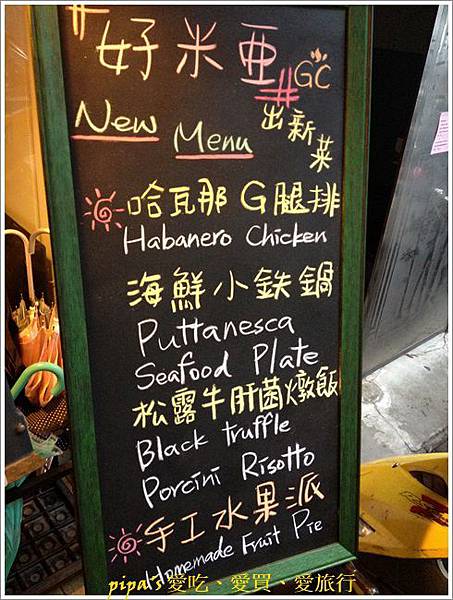 #好米亞#
GC
出新菜
New Menu
哈瓦那G腿排
Habanero Chicken
海鮮小鉄鍋
Puttanesca
Seafood Plate
松露牛肝菌燉飯
Black truffle
Porcini Risotto
手工水果派
Homemade Fruit Pie
pipa's愛吃、愛買、愛旅行